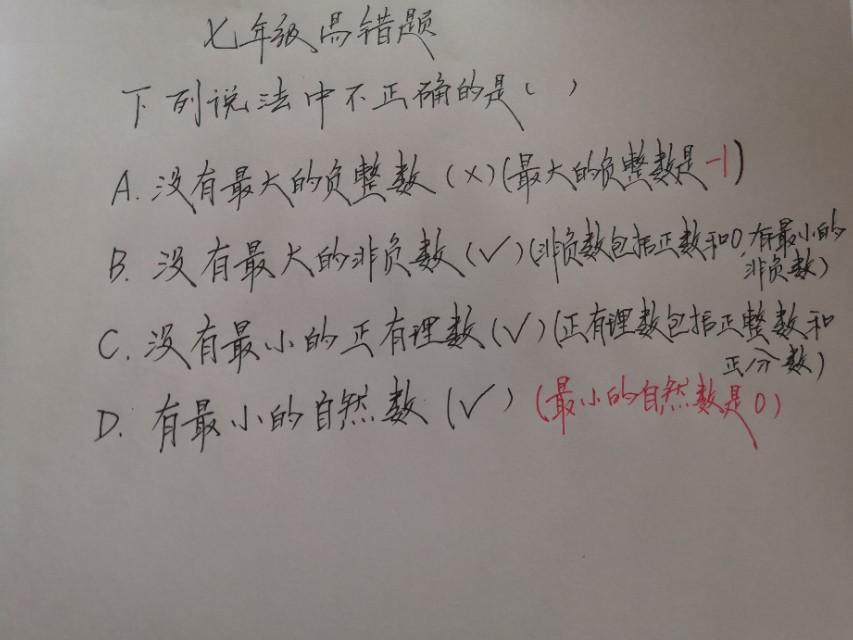 七年级易错题
下列说法中不正确的是( )
A. 没有最大的负整数(×)(最大的负整数是-1)
B. 没有最大的非负数(√)(非负数包括正数和0,有最小的
非负数)
C. 没有最小的正有理数(√)(正有理数包括正整数和
正分数)
D. 有最小的自然数(√)(最小的自然数是0)